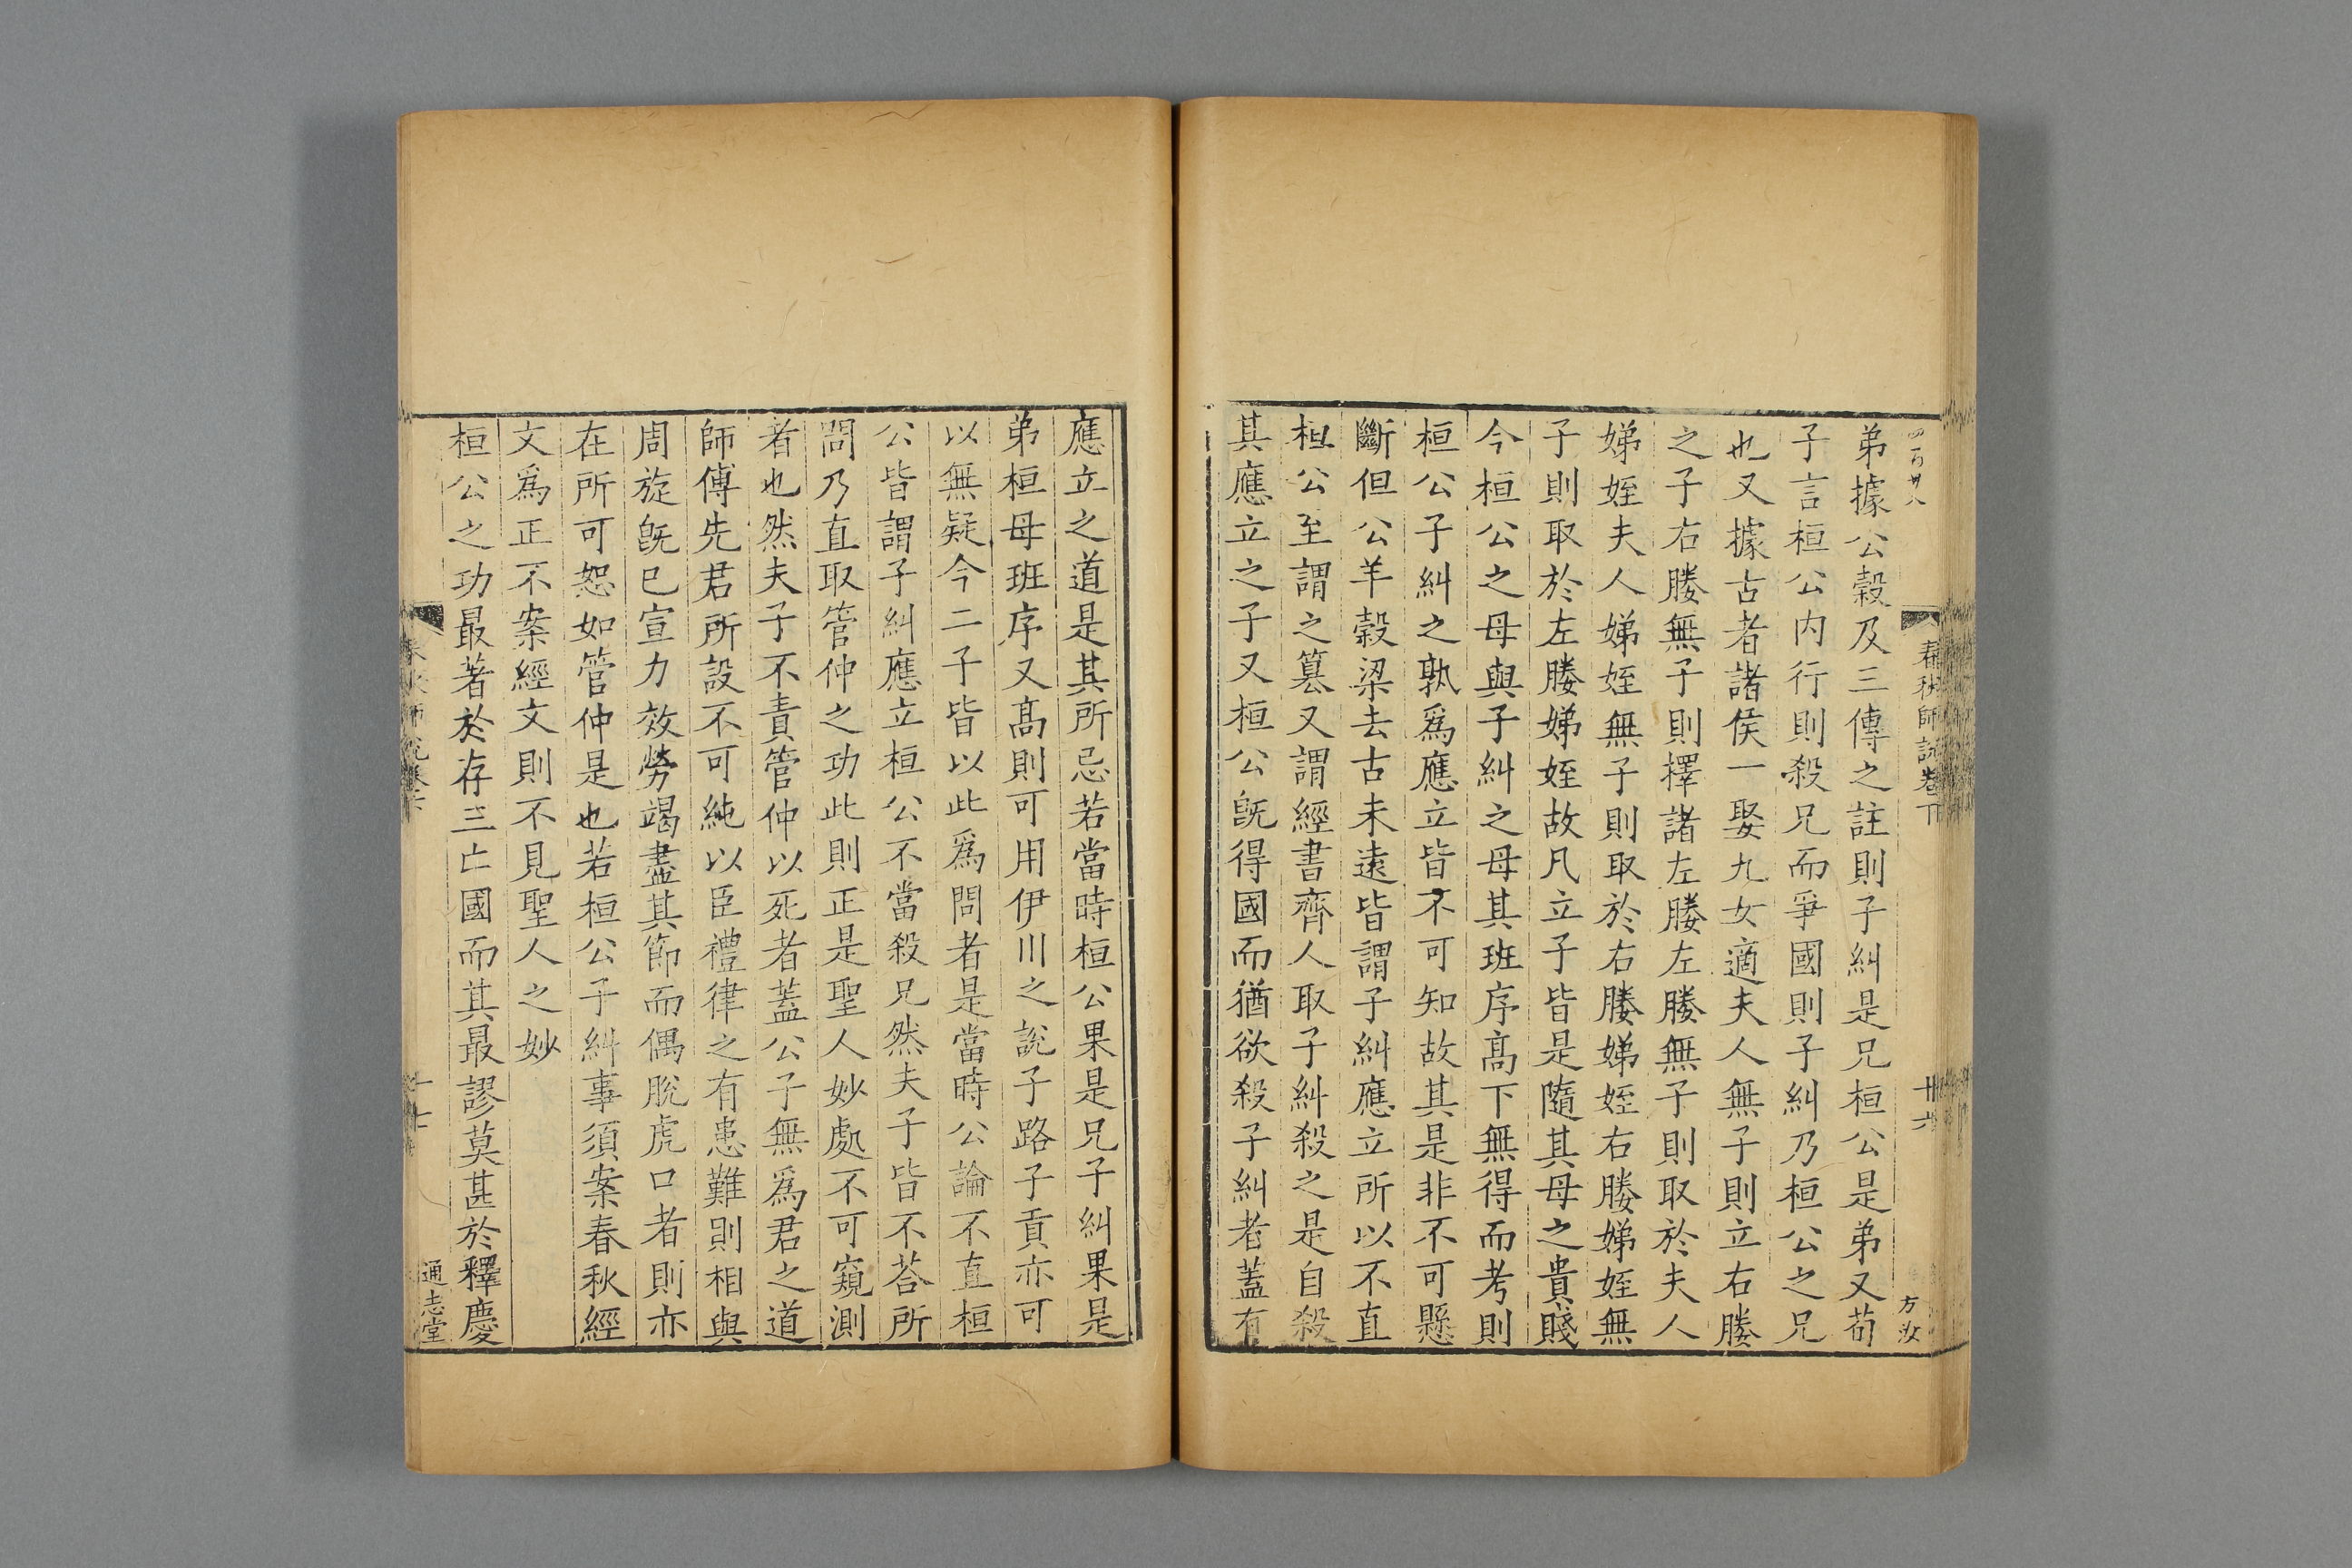 四百廿八
春秋師説卷下
廿六
方汝
弟據公糓及三傳之註則子糾是兄桓公是弟又茍
子言桓公内行則殺兄而爭國則子糾乃桓公之兄
也又據古者諸侯一娶九女適夫人無子則立右媵
之子右媵無子則擇諸左媵左媵無子則取於夫人
娣姪夫人娣姪無子則取於右媵娣姪右媵娣姪無
子則取於左媵娣姪故凡立子皆是隨其母之貴賤
今桓公之母與子糾之母其班序髙下無得而考則
桓公子糾之孰爲應立皆不可知故其是非不可懸
斷但公羊糓梁去古未遠皆謂子糾應立所以不直
桓公至謂之簒又謂經書齊人取子糾殺之是自殺
其應立之子又桓公旣得國而猶欲殺子糾者蓋有
應立之道是其所忌若當時桓公果是兄子糾果是
弟桓母班序又髙則可用伊川之説子路子貢亦可
以無疑今二子皆以此爲問者是當時公論不直桓
公皆謂子糾應立桓公不當殺兄然夫子皆不荅所
問乃直取管仲之功此則正是聖人妙處不可窺測
者也然夫子不責管仲以死者蓋公子無爲君之道
師傅先君所設不可純以臣禮律之有患難則相與
周旋旣已宣力效勞竭盡其節而偶脫虎口者則亦
在所可恕如管仲是也若桓公子糾事須案春秋經
文爲正不案經文則不見聖人之妙
桓公之功最著於存三亡國而其最謬莫甚於釋慶
春秋師説卷下
通志堂